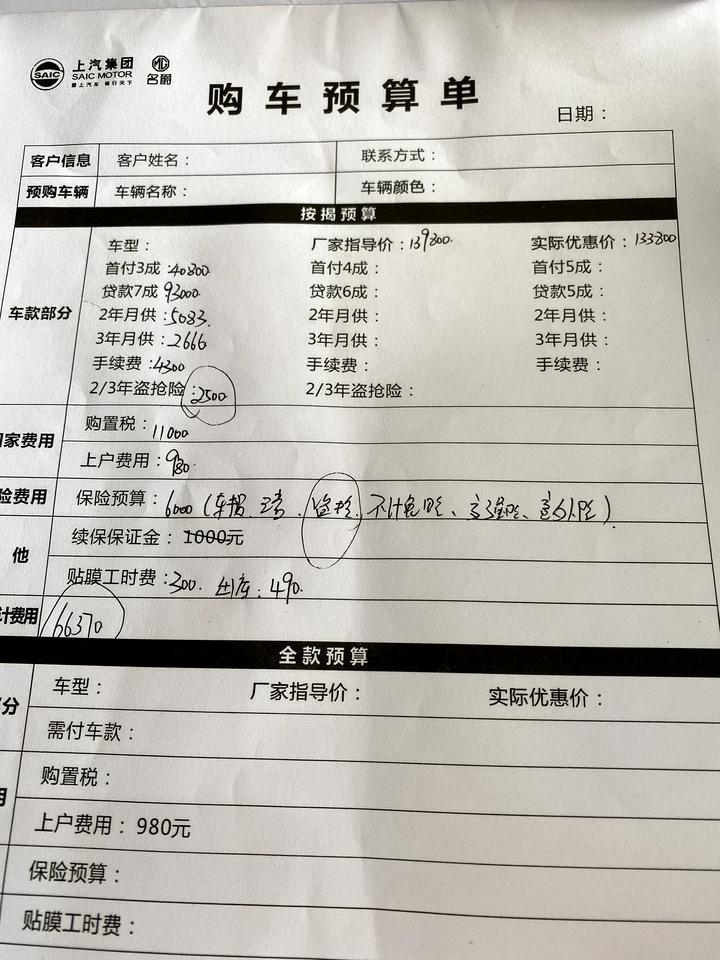 SAIC 上汽集团 SAIC MOTOR 爱上汽车 畅行天下 MG 名爵
购车预算单
日期：
客户信息 客户姓名： 联系方式：
预购车辆 车辆名称： 车辆颜色：
按揭预算
车型： 厂家指导价：139800. 实际优惠价：133800
首付3成：40800 首付4成： 首付5成：
贷款7成 93000 贷款6成： 贷款5成：
车款部分
2年月供：5083. 2年月供： 2年月供：
3年月供：2666 3年月供： 3年月供：
手续费：4300 手续费： 手续费：
2/3年盗抢险：2500 2/3年盗抢险：
购置税：11000
家费用
上户费用：980.
险费用 保险预算：6000（车损 三者、盗抢、不计免赔、玻璃险、意外险）
他 续保保证金：1000元
贴膜工时费：300. 出库：490.
计费用 66370
全款预算
分 车型： 厂家指导价： 实际优惠价：
需付车款：
购置税：
用
上户费用：980元
保险预算：
贴膜工时费：